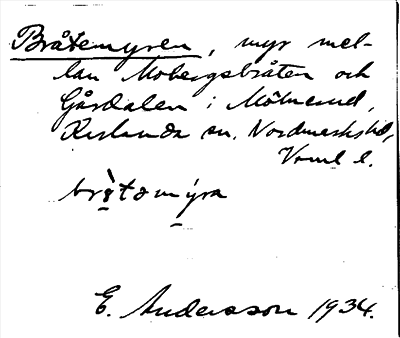 Bråtemyren, myr mel-
lan Mobergsbråten och
Gårdalen i Mölnerud,
sn. Nordmarks hd,
Vrml l.
E. Andersson 1934.